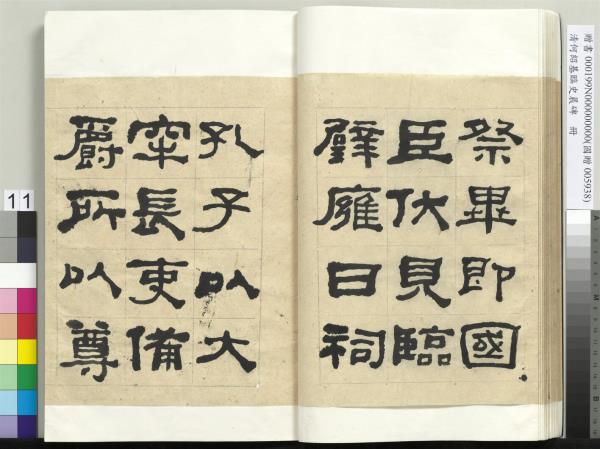 祭畢即國
臣伏見臨
辟廱日祠
孔子以大
牢長吏備
爵所以尊
贈書000199N000000000(國贈005938)
清何紹基臨史晨碑 冊
11